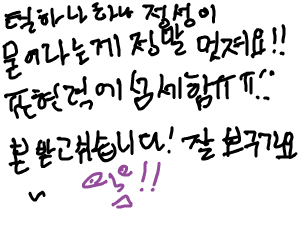 털하나하나 정성이
묻어나는게 정말 멋져요!!
표현력에 섬세함ㅠㅠ!!
본받고싶습니다! 잘 보구가요